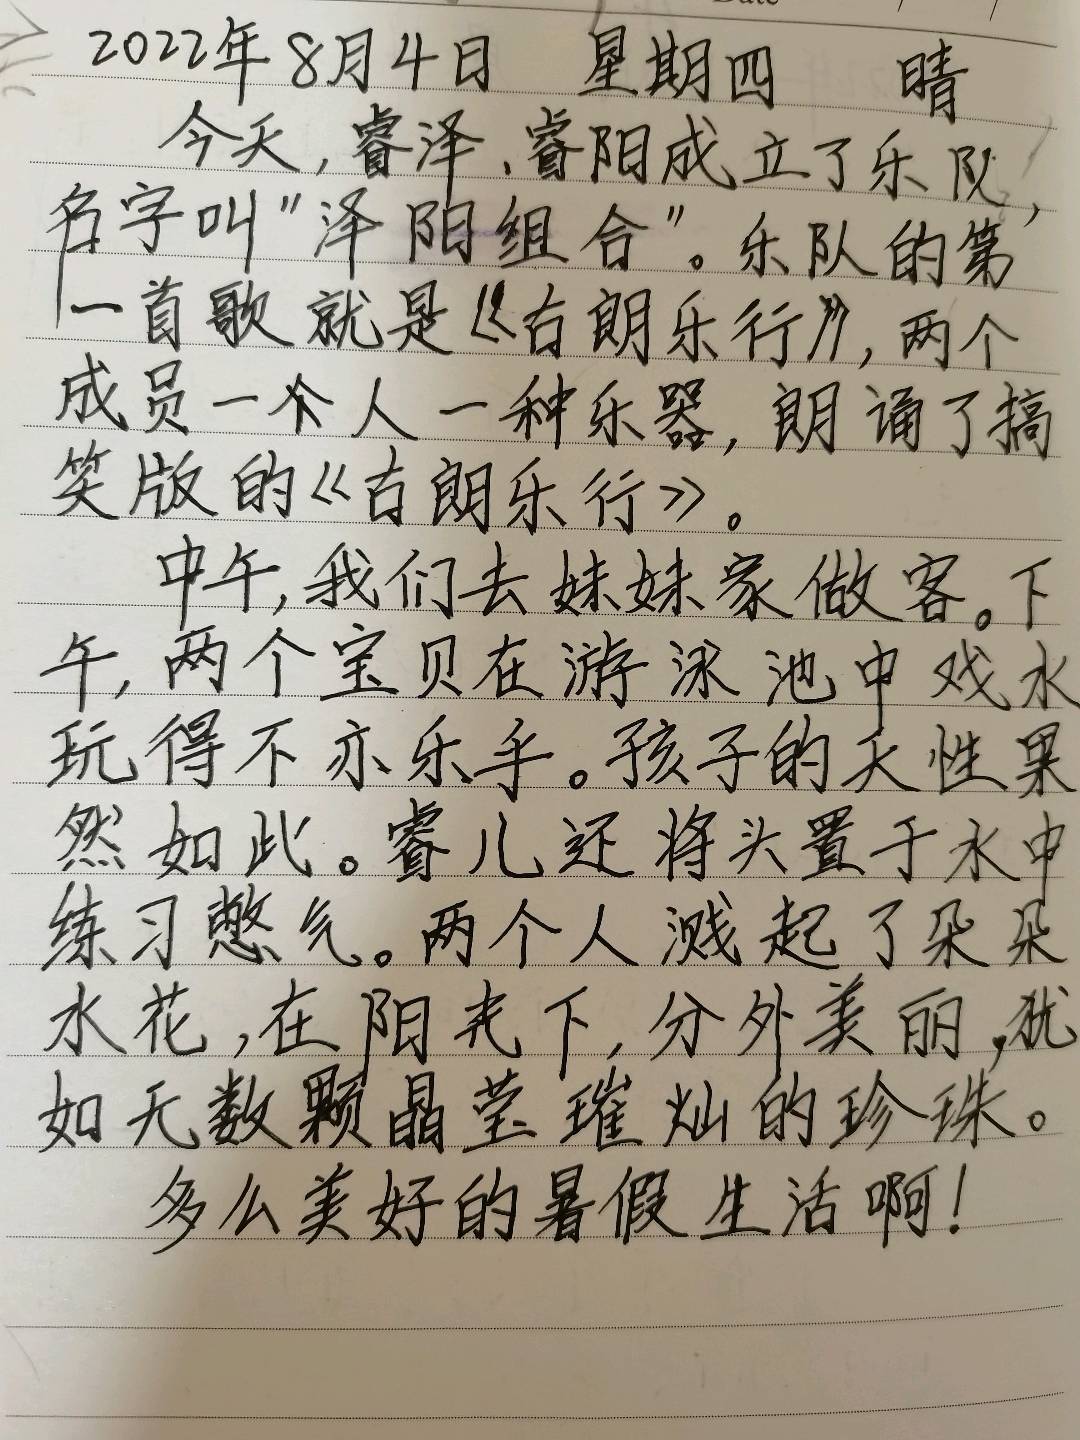 Date
2022年8月4日 星期四 晴
今天,睿泽、睿阳成立了乐队,
名字叫"泽阳组合"。乐队的第
一首歌就是《古朗乐行》,两个
成员一个人一种乐器,朗诵了搞
笑版的《古朗乐行》。
中午,我们去妹妹家做客。下
午,两个宝贝在游泳池中戏水
玩得不亦乐乎。孩子的天性果
然如此。睿儿还将头置于水中
练习憋气。两个人溅起了朵朵
水花,在阳光下,分外美丽,犹
如无数颗晶莹璀灿的珍珠。
多么美好的暑假生活啊!